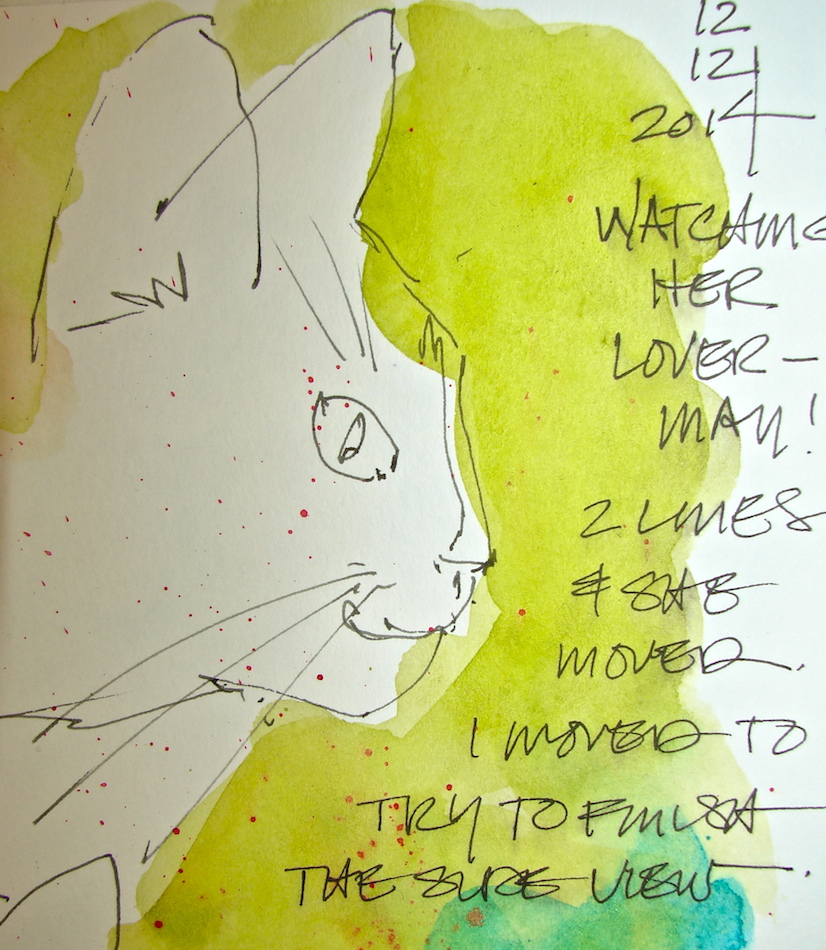 12
12
2014
WATCHING
HER
LOVER –
MAN!
2 LINES
& SHE
MOVED.
I MOVED TO
TRY TO FINISH
THE SIDE VIEW.